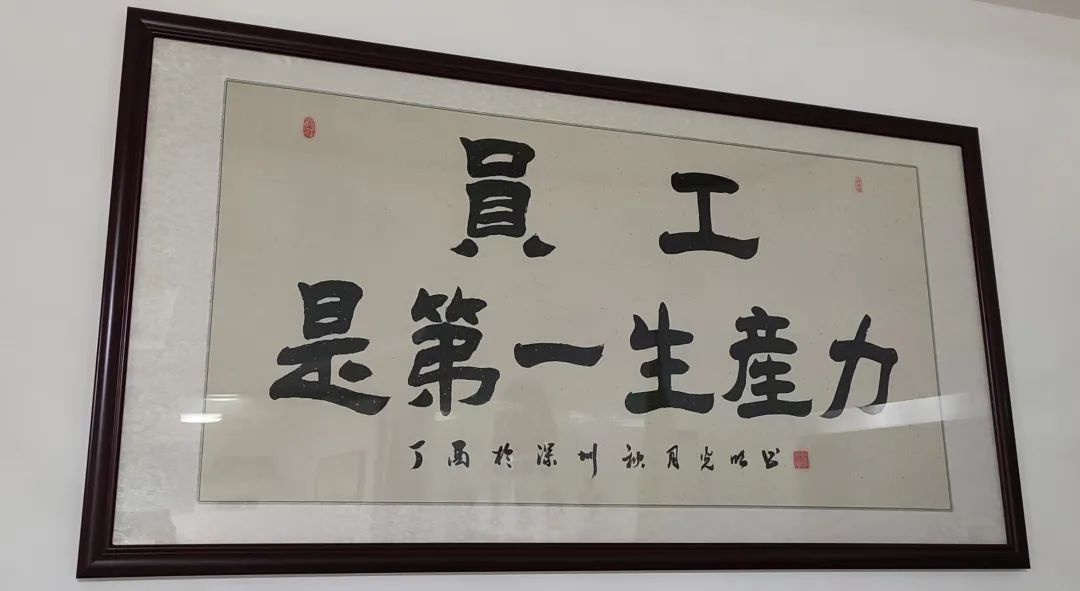 員工
是第一生產力
丁酉於深圳秋月光明書